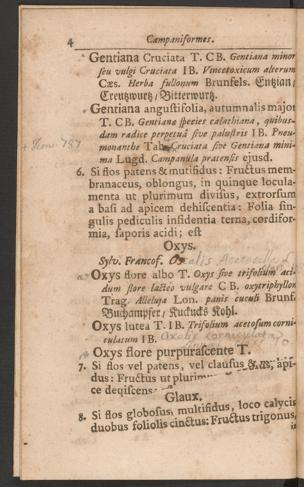 4 Campaniformes.
Gentiana Cruciata T. CB. Gentiana minor
seu vulgi Cruciata IB. Vincetoxicum alterum
Cæs. Herba fullonum Brunfels. Entzian/
Creutzwurtz/ Bitterwurtz.
Gentiana angustifolia, autumnalis major
T. CB. Gentianæ species calathiana, quibus-
dam radice perpetuâ sive palustris IB. Pneu-
monanthe Tab. Cruciata sive Gentiana mini-
ma Lugd. Campanula pratensis ejusd.
6. Si flos patens & mutifidus: Fructus mem-
branaceus, oblongus, in quinque locula-
menta ut plurimum divisus, extrorsum
a basi ad apicem dehiscentia: Folia sin-
gulis pediculis insidentia terna, cordifor-
mia, saporis acidi; est
Oxys.
Sylv. Francof. Oxalis Acetosella
Oxys flore albo T. Oxys sive trifolium aci-
dum flore lacteo vulgare CB. oxytriphyllon
Trag. Alleluja Lon. panis cuculi Brunf.
Buchampfer/ Kuckucks Kohl.
Oxys lutea T. IB. Trifolium acetosum corni-
culatum IB. Oxalis corniculata
Oxys flore purpurascente T.
7. Si flos vel patens, vel clausus &
dus: Fructus ut plurimum
ce dehiscens
Glaux.
8. Si flos globosus, multifidus, loco calycis
duobus foliolis cinctus: Fructus trigonus,